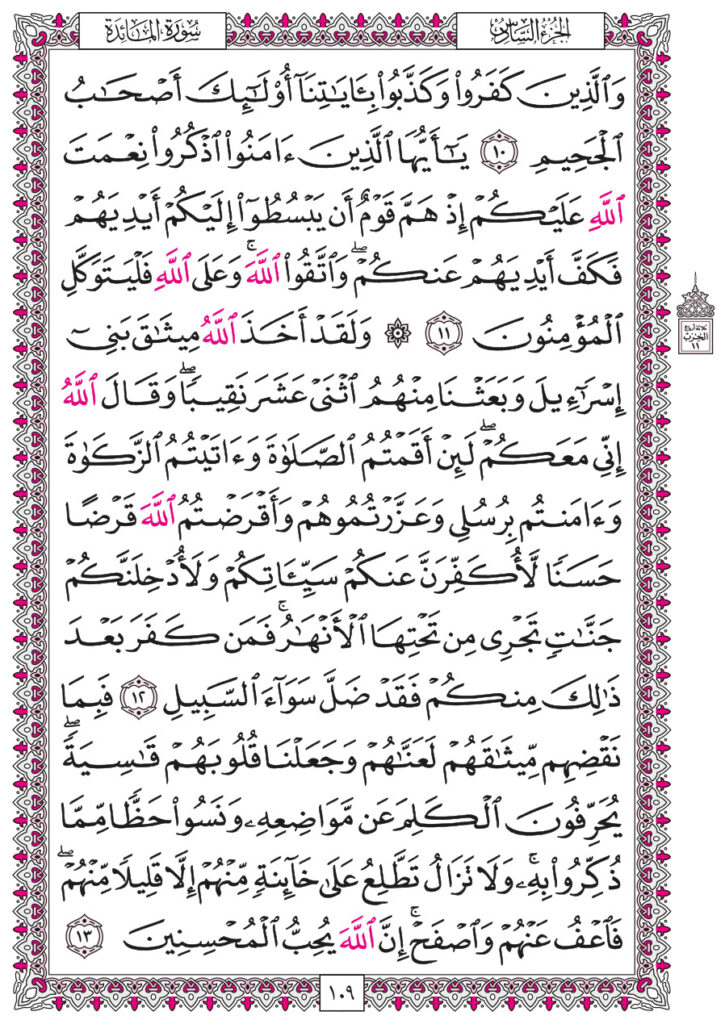 سُورَةُ المَائدَة
الجُزْءُ السَّادِسُ
وَالَّذِينَ كَفَرُوا۟ وَكَذَّبُوا۟ بِـَٔايَـٰتِنَآ أُو۟لَـٰٓئِكَ أَصْحَـٰبُ
ٱلْجَحِيمِ ١٠ يَـٰٓأَيُّهَا ٱلَّذِينَ ءَامَنُوا۟ ٱذْكُرُوا۟ نِعْمَتَ
ٱللَّهِ عَلَيْكُمْ إِذْ هَمَّ قَوْمٌ أَن يَبْسُطُوٓا۟ إِلَيْكُمْ أَيْدِيَهُمْ
فَكَفَّ أَيْدِيَهُمْ عَنكُمْ ۖ وَٱتَّقُوا۟ ٱللَّهَ ۚ وَعَلَى ٱللَّهِ فَلْيَتَوَكَّلِ
ٱلْمُؤْمِنُونَ ١١ ۞ وَلَقَدْ أَخَذَ ٱللَّهُ مِيثَـٰقَ بَنِىٓ
إِسْرَٰٓءِيلَ وَبَعَثْنَا مِنْهُمُ ٱثْنَىْ عَشَرَ نَقِيبًا ۖ وَقَالَ ٱللَّهُ
إِنِّى مَعَكُمْ ۖ لَئِنْ أَقَمْتُمُ ٱلصَّلَوٰةَ وَءَاتَيْتُمُ ٱلزَّكَوٰةَ
وَءَامَنتُم بِرُسُلِى وَعَزَّرْتُمُوهُمْ وَأَقْرَضْتُمُ ٱللَّهَ قَرْضًا
حَسَنًا لَّأُكَفِّرَنَّ عَنكُمْ سَيِّـَٔاتِكُمْ وَلَأُدْخِلَنَّكُمْ
جَنَّـٰتٍ تَجْرِى مِن تَحْتِهَا ٱلْأَنْهَـٰرُ ۚ فَمَن كَفَرَ بَعْدَ
ذَٰلِكَ مِنكُمْ فَقَدْ ضَلَّ سَوَآءَ ٱلسَّبِيلِ ١٢ فَبِمَا
نَقْضِهِم مِّيثَـٰقَهُمْ لَعَنَّـٰهُمْ وَجَعَلْنَا قُلُوبَهُمْ قَـٰسِيَةً ۖ
يُحَرِّفُونَ ٱلْكَلِمَ عَن مَّوَاضِعِهِۦ وَنَسُوا۟ حَظًّا مِّمَّا
ذُكِّرُوا۟ بِهِۦ ۚ وَلَا تَزَالُ تَطَّلِعُ عَلَىٰ خَآئِنَةٍ مِّنْهُمْ إِلَّا قَلِيلًا مِّنْهُمْ ۖ
فَٱعْفُ عَنْهُمْ وَٱصْفَحْ ۚ إِنَّ ٱللَّهَ يُحِبُّ ٱلْمُحْسِنِينَ ١٣
ثلاثة أرباع
الحزب
١١
١٠٩